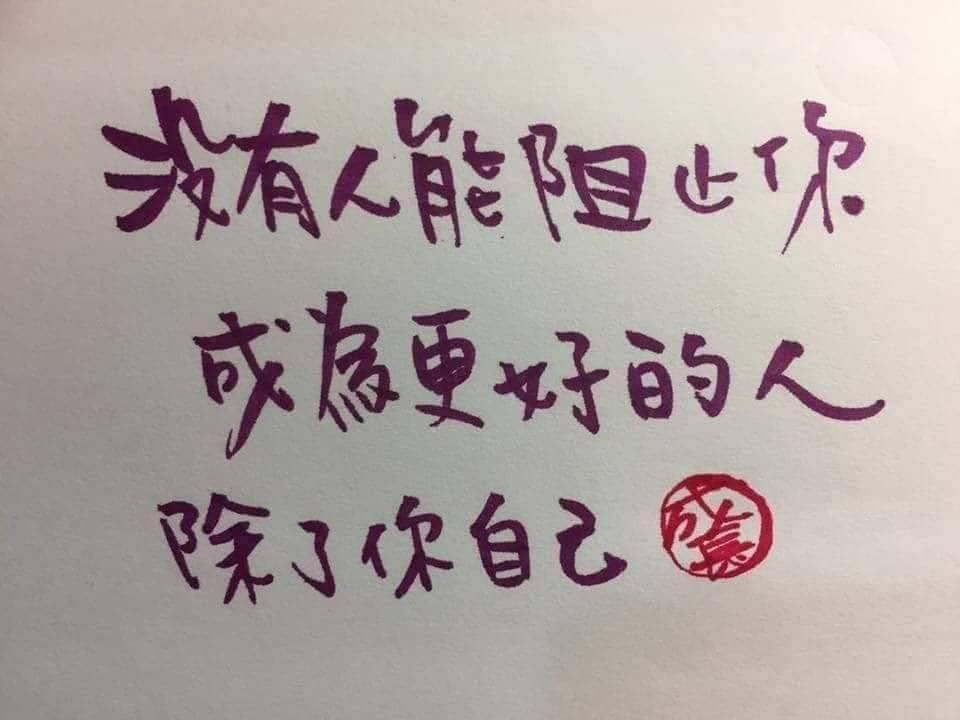 沒有人能阻止你
成為更好的人
除了你自己